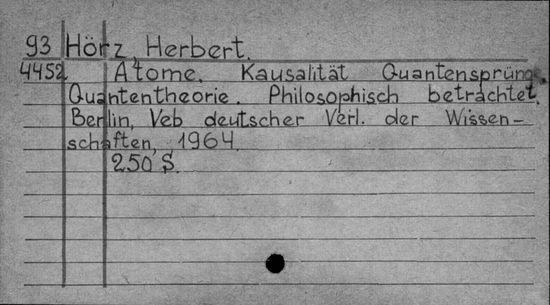 93 Hörz, Herbert.
4452 Atome. Kausalität Quantensprünge.
Quantentheorie. Philosophisch betrachtet.
Berlin, Veb deutscher Verl. der Wissen-
schaften, 1964.
250 S.